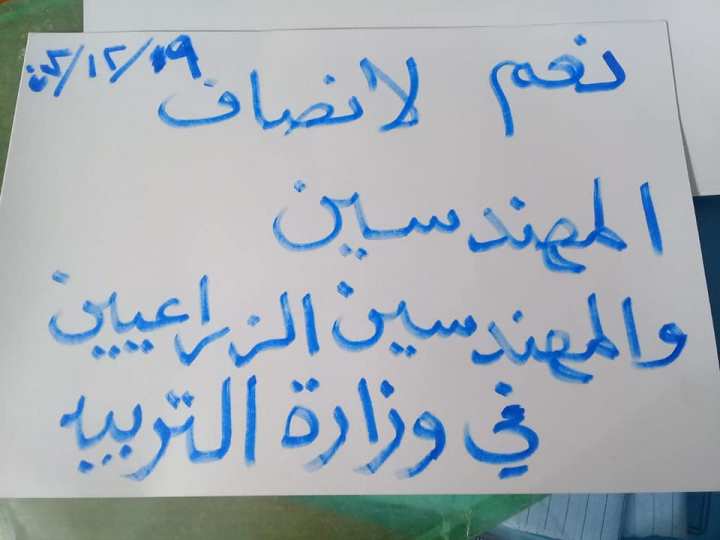 نعم لانصاف
المهندسين
والمهندسين الزراعيين
في وزارة التربيه